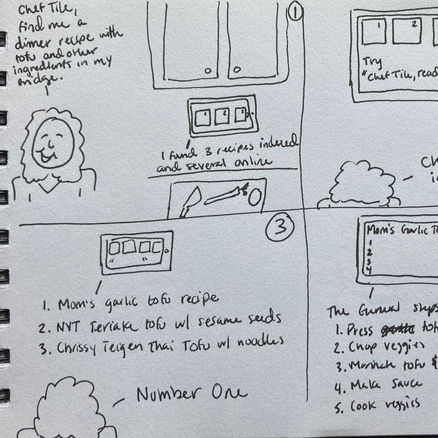 Chef Tile,
Find me a
dinner recipe with
tofu and other
ingredients in my
fridge.
1
1 2 3
I found 3 recipes indexed
and several online
1 2
Try
"Chef Tile, read
Ch
3
1. Mom's garlic tofu recipe
2. NYT Teriake tofu w/ sesame seeds
3. Chrissy Teigen Thai Tofu w/ noodles
Number One
Mom's Garlic T
1
2
3
4
The General steps
1. Press tof
2. Chop veggies
3. Marinate tofu
4. Make sauce
5. Cook veggies